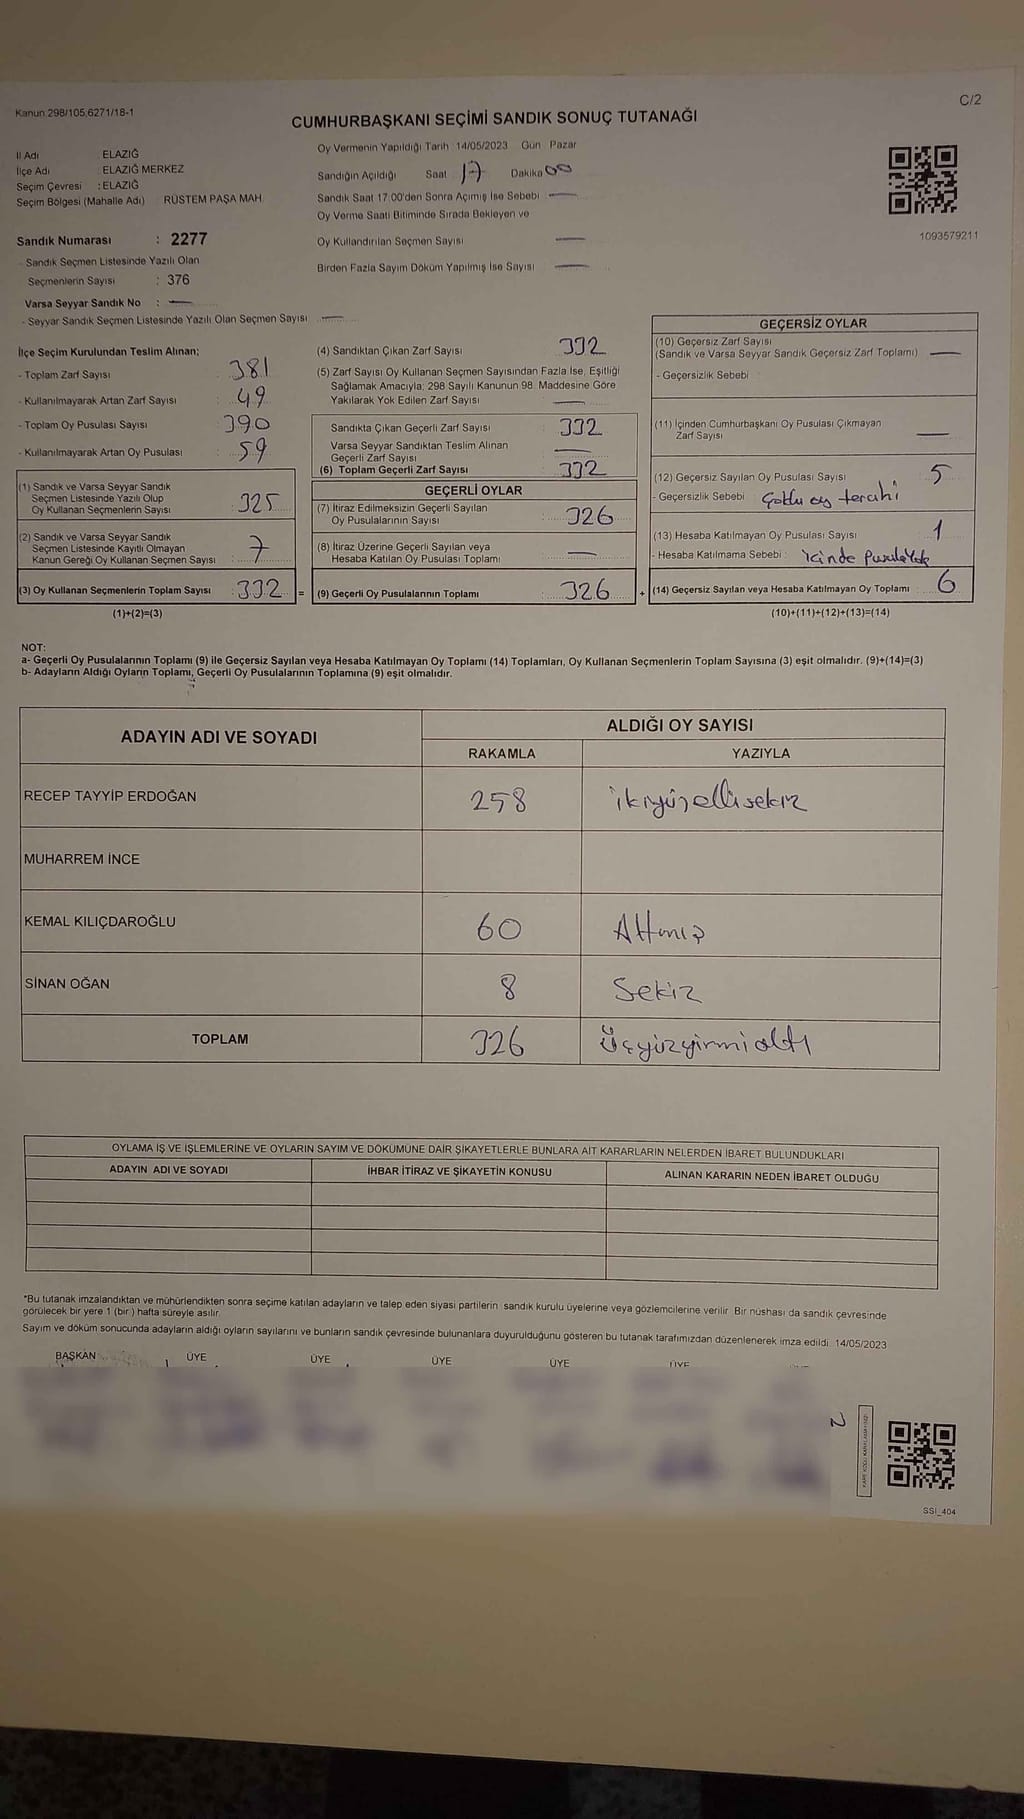 Kanun 298/105,6271/18-1
C/2
CUMHURBAŞKANI SEÇİMİ SANDIK SONUÇ TUTANAĞI
İl Adı ELAZIĞ
İlçe Adı : ELAZIĞ MERKEZ
Seçim Çevresi : ELAZIĞ
Seçim Bölgesi (Mahalle Adı) RÜSTEM PAŞA MAH.
Sandık Numarası : 2277
- Sandık Seçmen Listesinde Yazılı Olan
Seçmenlerin Sayısı : 376
Varsa Seyyar Sandık No : —
- Seyyar Sandık Seçmen Listesinde Yazılı Olan Seçmen Sayısı : —
Oy Vermenin Yapıldığı Tarih 14/05/2023 Gün Pazar
Sandığın Açıldığı Saat 17 Dakika 00
Sandık Saat 17:00'den Sonra Açılmış İse Sebebi —
Oy Verme Saati Bitiminde Sırada Bekleyen ve
Oy Kullandırılan Seçmen Sayısı —
Birden Fazla Sayım Döküm Yapılmış İse Sayısı —
1093579211
İlçe Seçim Kurulundan Teslim Alınan;
- Toplam Zarf Sayısı : 381
- Kullanılmayarak Artan Zarf Sayısı : 49
- Toplam Oy Pusulası Sayısı : 390
- Kullanılmayarak Artan Oy Pusulası : 59
(1) Sandık ve Varsa Seyyar Sandık
Seçmen Listesinde Yazılı Olup
Oy Kullanan Seçmenlerin Sayısı : 325
(2) Sandık ve Varsa Seyyar Sandık
Seçmen Listesinde Kayıtlı Olmayan
Kanun Gereği Oy Kullanan Seçmen Sayısı : 7
(3) Oy Kullanan Seçmenlerin Toplam Sayısı : 332 =
(1)+(2)=(3)
(4) Sandıktan Çıkan Zarf Sayısı 332
(5) Zarf Sayısı Oy Kullanan Seçmen Sayısından Fazla İse, Eşitliği
Sağlamak Amacıyla; 298 Sayılı Kanunun 98. Maddesine Göre
Yakılarak Yok Edilen Zarf Sayısı —
Sandıkta Çıkan Geçerli Zarf Sayısı : 332
Varsa Seyyar Sandıktan Teslim Alınan
Geçerli Zarf Sayısı —
(6) Toplam Geçerli Zarf Sayısı : 332
GEÇERLİ OYLAR
(7) İtiraz Edilmeksizin Geçerli Sayılan
Oy Pusulalarının Sayısı : 326
(8) İtiraz Üzerine Geçerli Sayılan veya
Hesaba Katılan Oy Pusulası Toplamı : —
(9) Geçerli Oy Pusulalarının Toplamı : 326 +
GEÇERSİZ OYLAR
(10) Geçersiz Zarf Sayısı
(Sandık ve Varsa Seyyar Sandık Geçersiz Zarf Toplamı) —
- Geçersizlik Sebebi
(11) İçinden Cumhurbaşkanı Oy Pusulası Çıkmayan
Zarf Sayısı —
(12) Geçersiz Sayılan Oy Pusulası Sayısı 5
- Geçersizlik Sebebi Çoklu oy tercihi
(13) Hesaba Katılmayan Oy Pusulası Sayısı 1
- Hesaba Katılmama Sebebi : içinde pusula yok
(14) Geçersiz Sayılan veya Hesaba Katılmayan Oy Toplamı : 6
(10)+(11)+(12)+(13)=(14)
NOT:
a- Geçerli Oy Pusulalarının Toplamı (9) ile Geçersiz Sayılan veya Hesaba Katılmayan Oy Toplamı (14) Toplamları, Oy Kullanan Seçmenlerin Toplam Sayısına (3) eşit olmalıdır. (9)+(14)=(3)
b- Adayların Aldığı Oyların Toplamı, Geçerli Oy Pusulalarının Toplamına (9) eşit olmalıdır.
ADAYIN ADI VE SOYADI
ALDIĞI OY SAYISI
RAKAMLA YAZIYLA
RECEP TAYYİP ERDOĞAN 258 ikiyüzellisekiz
MUHARREM İNCE
KEMAL KILIÇDAROĞLU 60 Altmış
SİNAN OĞAN 8 Sekiz
TOPLAM 326 Üçyüzyirmialtı
OYLAMA İŞ VE İŞLEMLERİNE VE OYLARIN SAYIM VE DÖKÜMÜNE DAİR ŞİKAYETLERLE BUNLARA AİT KARARLARIN NELERDEN İBARET BULUNDUKLARI
ADAYIN ADI VE SOYADI İHBAR İTİRAZ VE ŞİKAYETİN KONUSU ALINAN KARARIN NEDEN İBARET OLDUĞU
*Bu tutanak imzalandıktan ve mühürlendikten sonra seçime katılan adayların ve talep eden siyasi partilerin sandık kurulu üyelerine veya gözlemcilerine verilir. Bir nüshası da sandık çevresinde
görülecek bir yere 1 (bir) hafta süreyle asılır.
Sayım ve döküm sonucunda adayların aldığı oyların sayılarını ve bunların sandık çevresinde bulunanlara duyurulduğunu gösteren bu tutanak tarafımızdan düzenlenerek imza edildi. 14/05/2023
BAŞKAN ÜYE ÜYE ÜYE ÜYE ÜYE
2
SSI_404